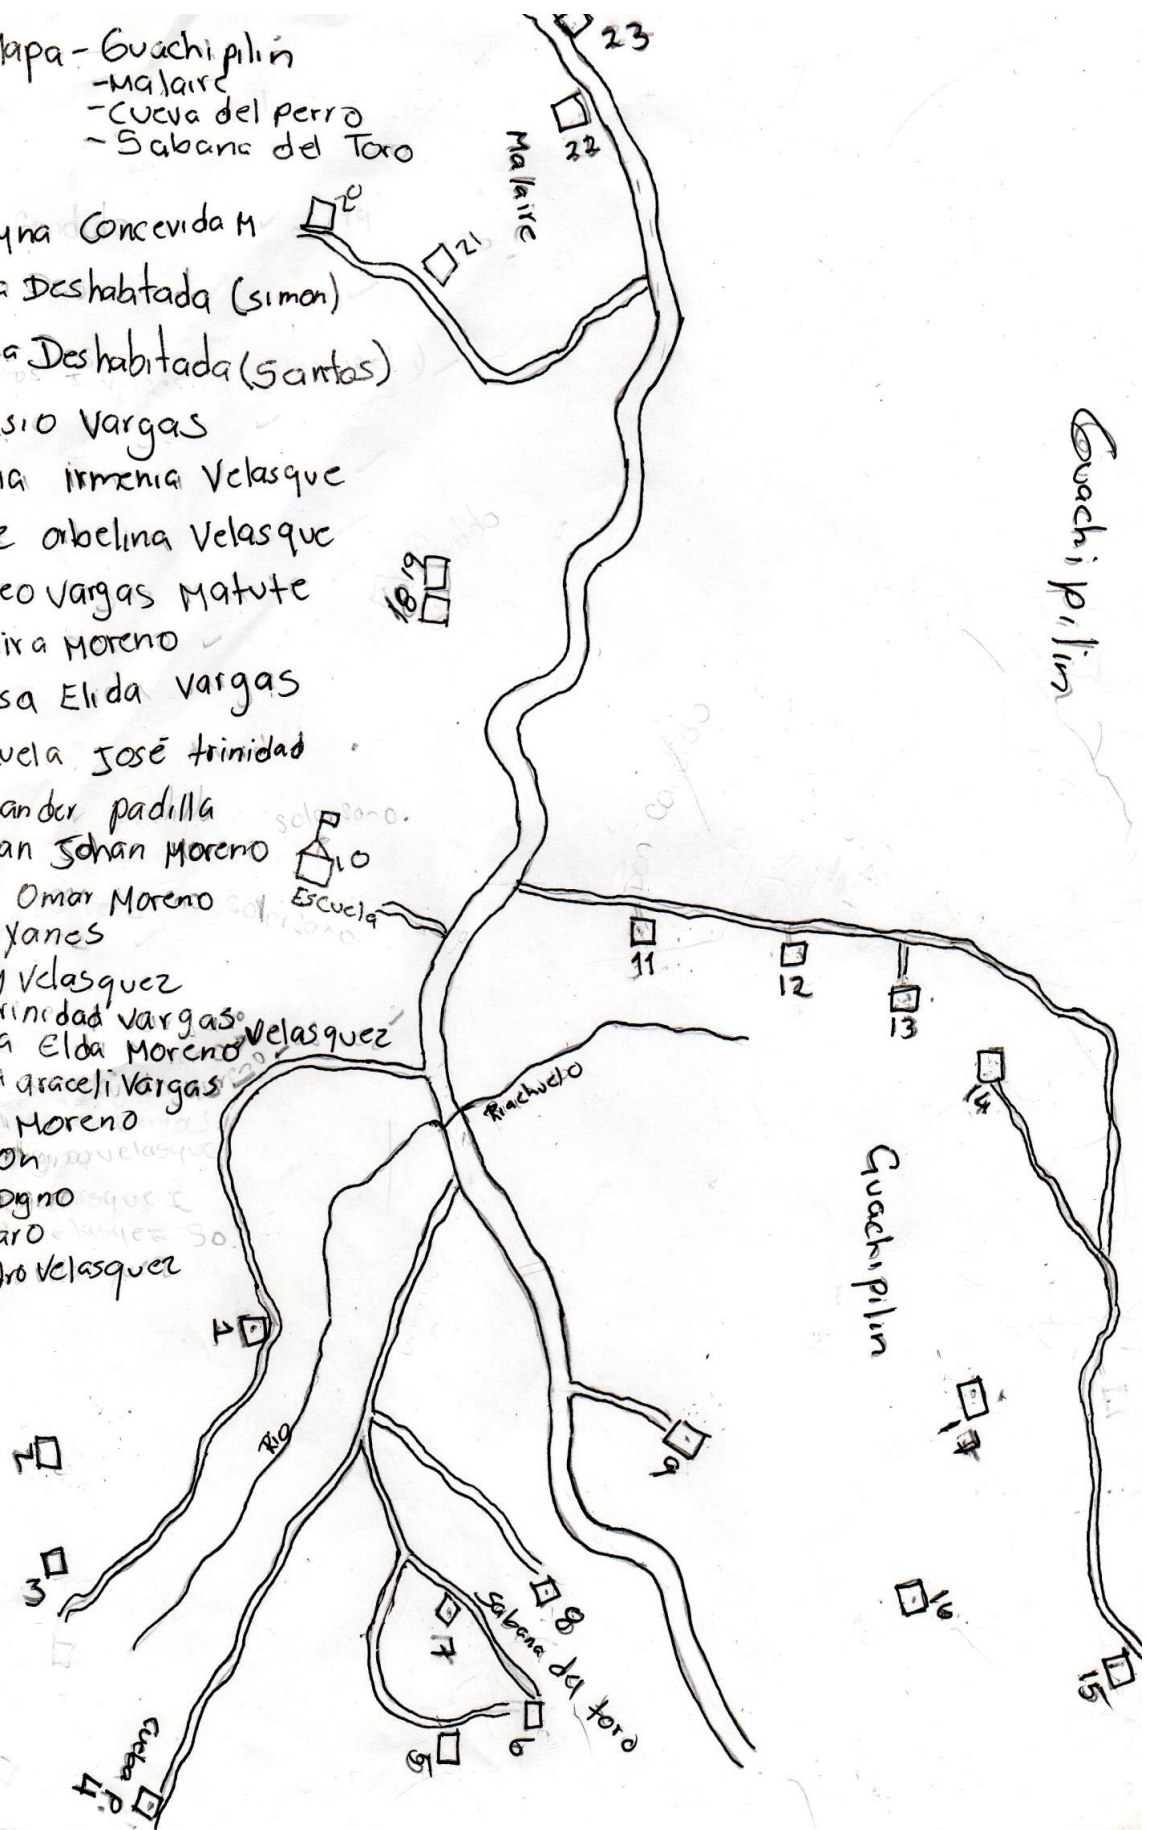 lapa - Guachipilin
-Malaire
-Cueva del perro
-Sabana del Toro
yna Concevida M
a Deshabitada (simon)
a Deshabitada (Santos)
sio Vargas
ia irmenia Velasque
e orbelina Velasque
eo Vargas Matute
ira Moreno
sa Elida Vargas
uela José trinidad
ander padilla
an Johan Moreno
Omar Moreno
Yanes
y Velasquez
rinidad Vargas Velasquez
a Elda Moreno
araceli Vargas
Moreno
on
Digno
aro
dro Velasquez
23
22
Malaire
20
21
Guachipilin
19
18
10
Escuela
11
12
13
14
Riachuelo
Guachipilin
1
2
3
Rio
9
17
16
15
8
Sabana da toro
7
6
5
Cueba P.
4